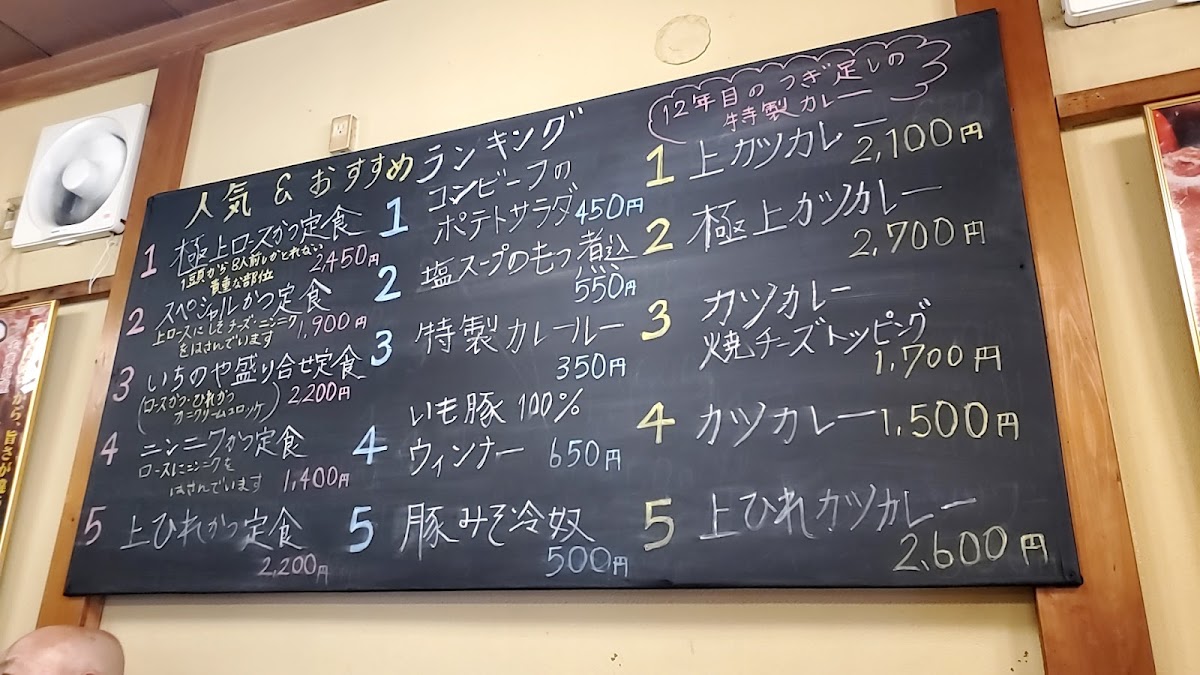 人気&おすすめランキング
1 極上ロースかつ定食
1頭から8人前しかとれない
貴重な部位
2,450円
2 スペシャルかつ定食
上ロースにしそチーズ・ニンニク
をはさんでいます
1,900円
3 いちのや盛り合せ定食
(ロースかつ・ひれかつ
カニクリームコロッケ)
2,200円
4 ニンニクかつ定食
ロースにニンニクを
はさんでいます
1,400円
5 上ひれかつ定食
2,200円
1 コンビーフの
ポテトサラダ 450円
2 塩スープのもつ煮込
550円
3 特製カレールー
350円
4 いも豚100%
ウィンナー 650円
5 豚みそ冷奴
500円
12年目のつぎ足しの
特製カレー
1 上カツカレー
2,100円
2 極上カツカレー
2,700円
3 カツカレー
焼チーズトッピング
1,700円
4 カツカレー 1,500円
5 上ひれカツカレー
2,600円
から、旨さが